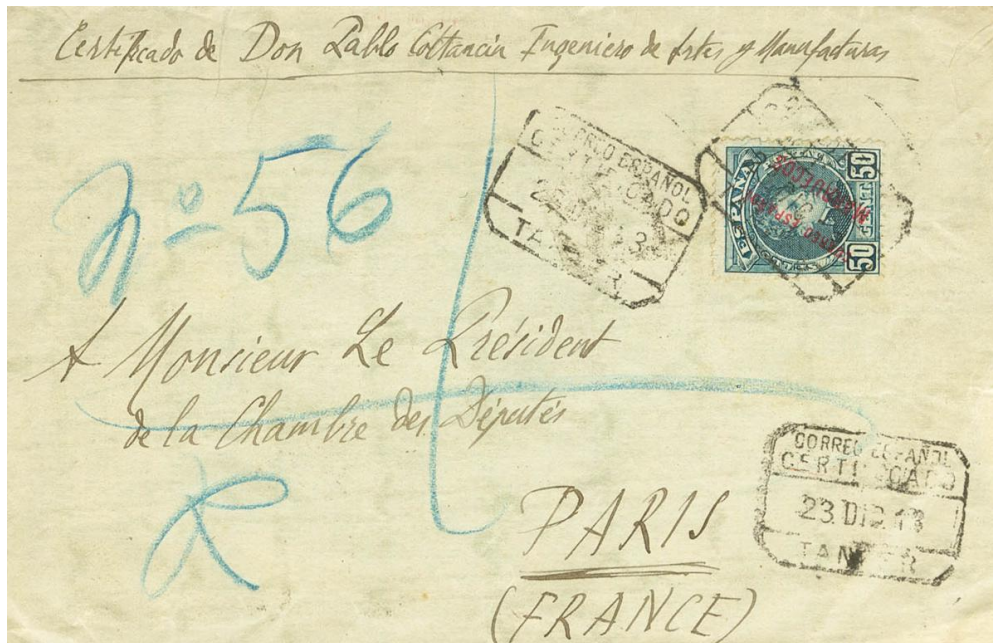 Certificado de Don Pablo Ingeniero de Artes y Manufacturas
nº 56
CORREO ESPAÑOL
CERTIFICADO
TANGER
ESPAÑA
50
50
CORREO ESPAÑOL
MARRUECOS
A Monsieur Le Président
de la Chambre des Députés
R
PARIS
(FRANCE)
CORREO ESPAÑOL
CERTIFICADO
23 DIC 13
TANGER